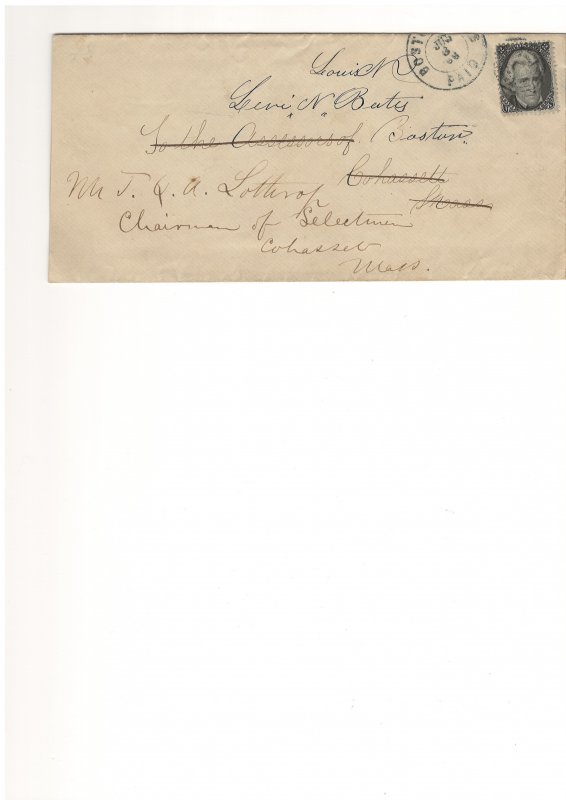 BOSTO S
PAID
Louis N
Levi N Bates
" "
To the Assessors of Boston.
Cohassett
Mass.
Mr J. Q. A. Lothrop
Chairman of Selectmen
Cohasset
Mass.